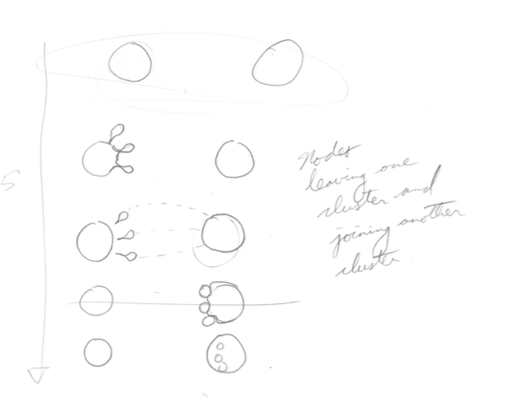 Nodes
leaving one
cluster and
joining another
cluster